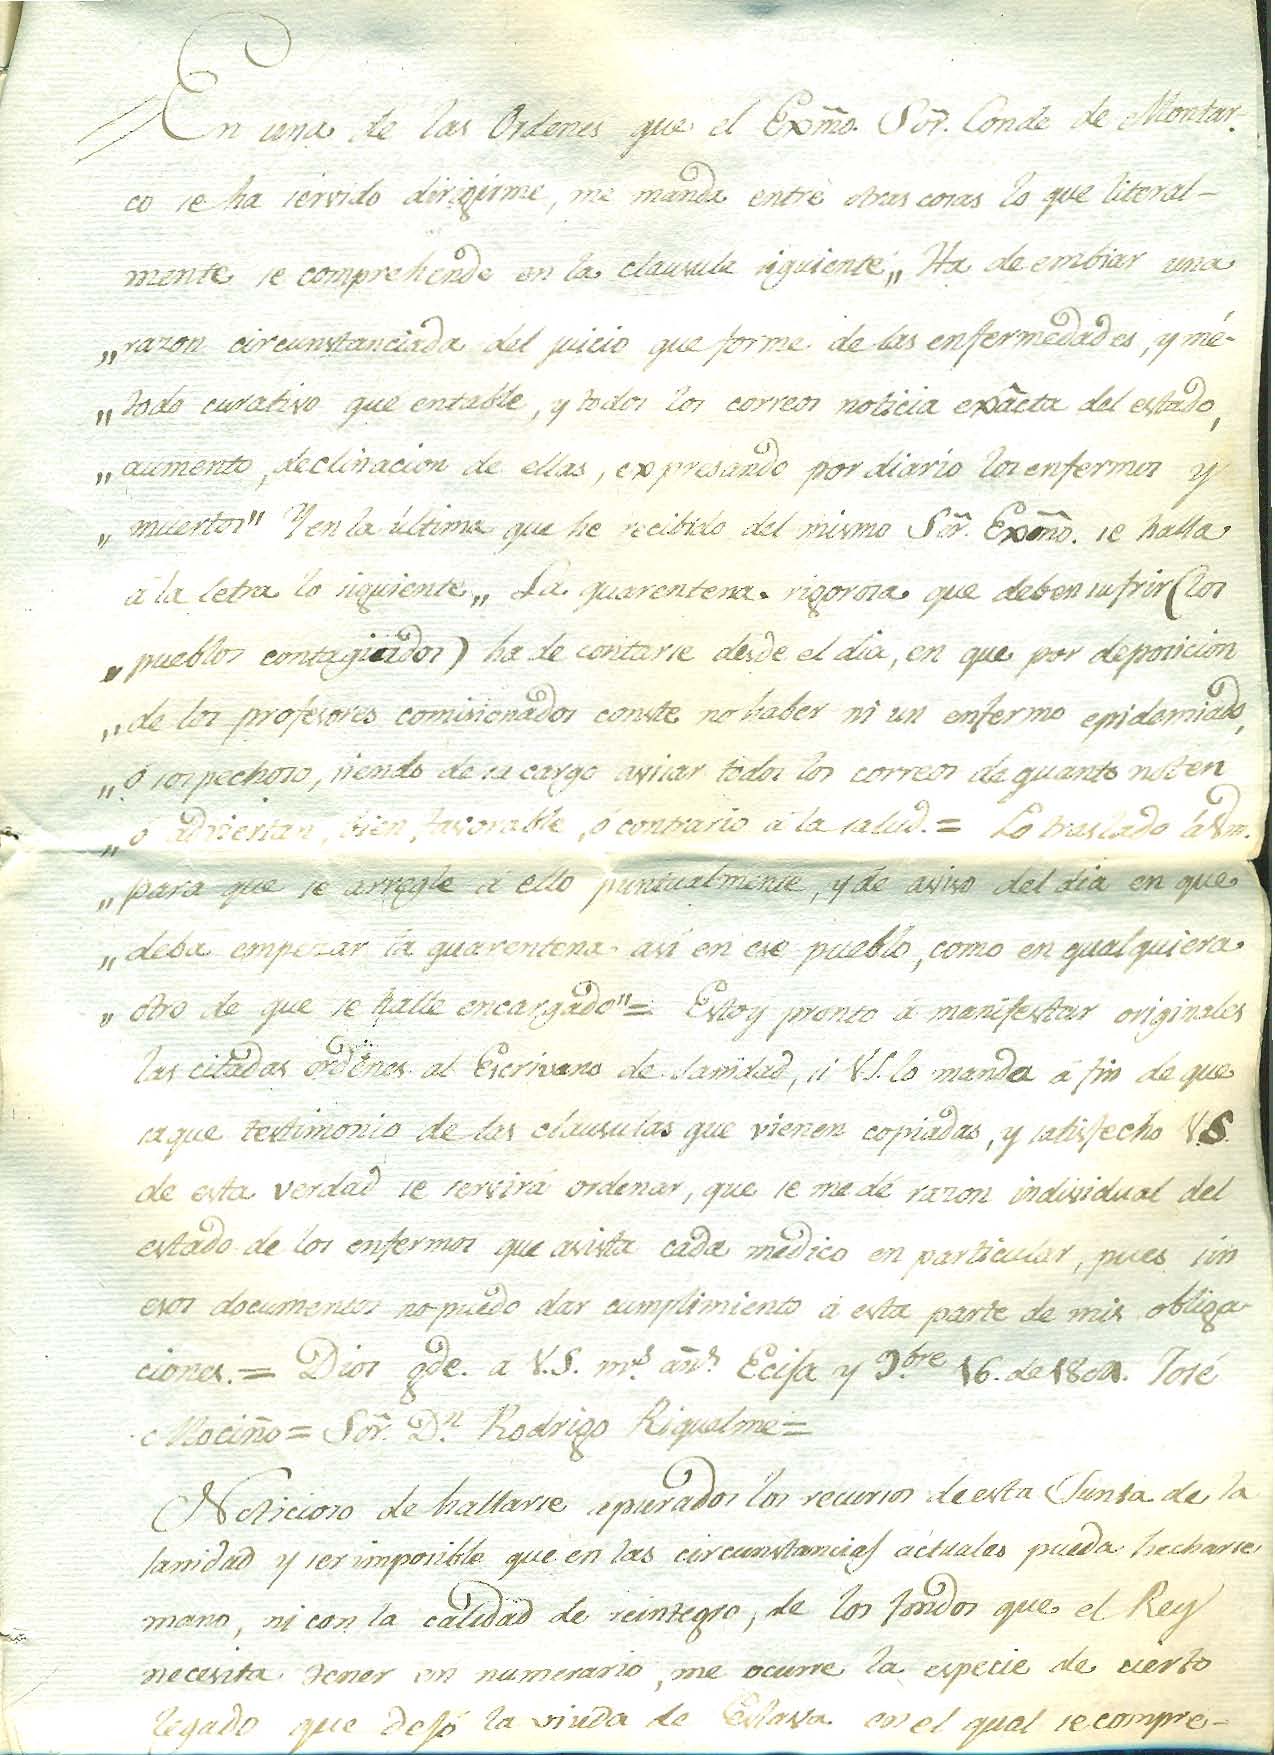 En una de las Ordenes que el Exm̃o. Sor̃. Conde de Montar-
co se ha servido dirigirme, me manda entre otras cosas lo que literal-
mente se comprehende en la clausula siguiente „ Ha de embiar una
„ razon circunstanciada del juicio que forme de las enfermedades, y mé-
„ todo curativo que entable, y todos los correos noticia exâcta del estado,
„ aumento, declinacion de ellas, expresando por diario los enfermos y
„ muertos" Y en la última que he recibido del mismo Sor̃. Exm̃o. se halla
á la letra lo siguiente „ La quarentena rigorosa que deben sufrir (los
„ pueblos contagiados) ha de contarse desde el dia, en que por deposicion
„ de los profesores comisionados conste no haber ni un enfermo epidemiado,
„ ó sospechoso, siendo de su cargo avisar todos los correos de quanto noten
„ ó adviertan, bien favorable, ó contrario á la salud. = Lo traslado á Vm.
„ para que se arregle á ello puntualmente, y dé aviso del dia en que
„ deba empezar la quarentena asi en ese pueblo, como en qualquiera
„ otro de que se halle encargado" = Estoy pronto á manifestar originales
las citadas ordenes al Escrivano de Sanidad, si V.S. lo manda á fin de que
saque testimonio de las clausulas que vienen copiadas, y satisfecho V.S.
de esta verdad se servirá ordenar, que se me dé razon individual del
estado de los enfermos que asista cada medico en particular, pues sin
esos documentos no puedo dar cumplimiento á esta parte de mis obliga-
ciones. = Dios gde. á V.S. ms. añs. Ecija y 9.bre 16. de 1804. José
Mociño = Sor̃. Dn. Rodrigo Riquelme =
Noticioso de hallarse apurados los recursos de esta Junta de la
Sanidad y ser imposible que en las circunstancias actuales pueda hecharse
mano, ni con la calidad de reintegro, de los fondos que el Rey
necesita tener en numerario, me ocurre la especie de cierto
legado que dejó la viuda de Eslava en el qual se compre-